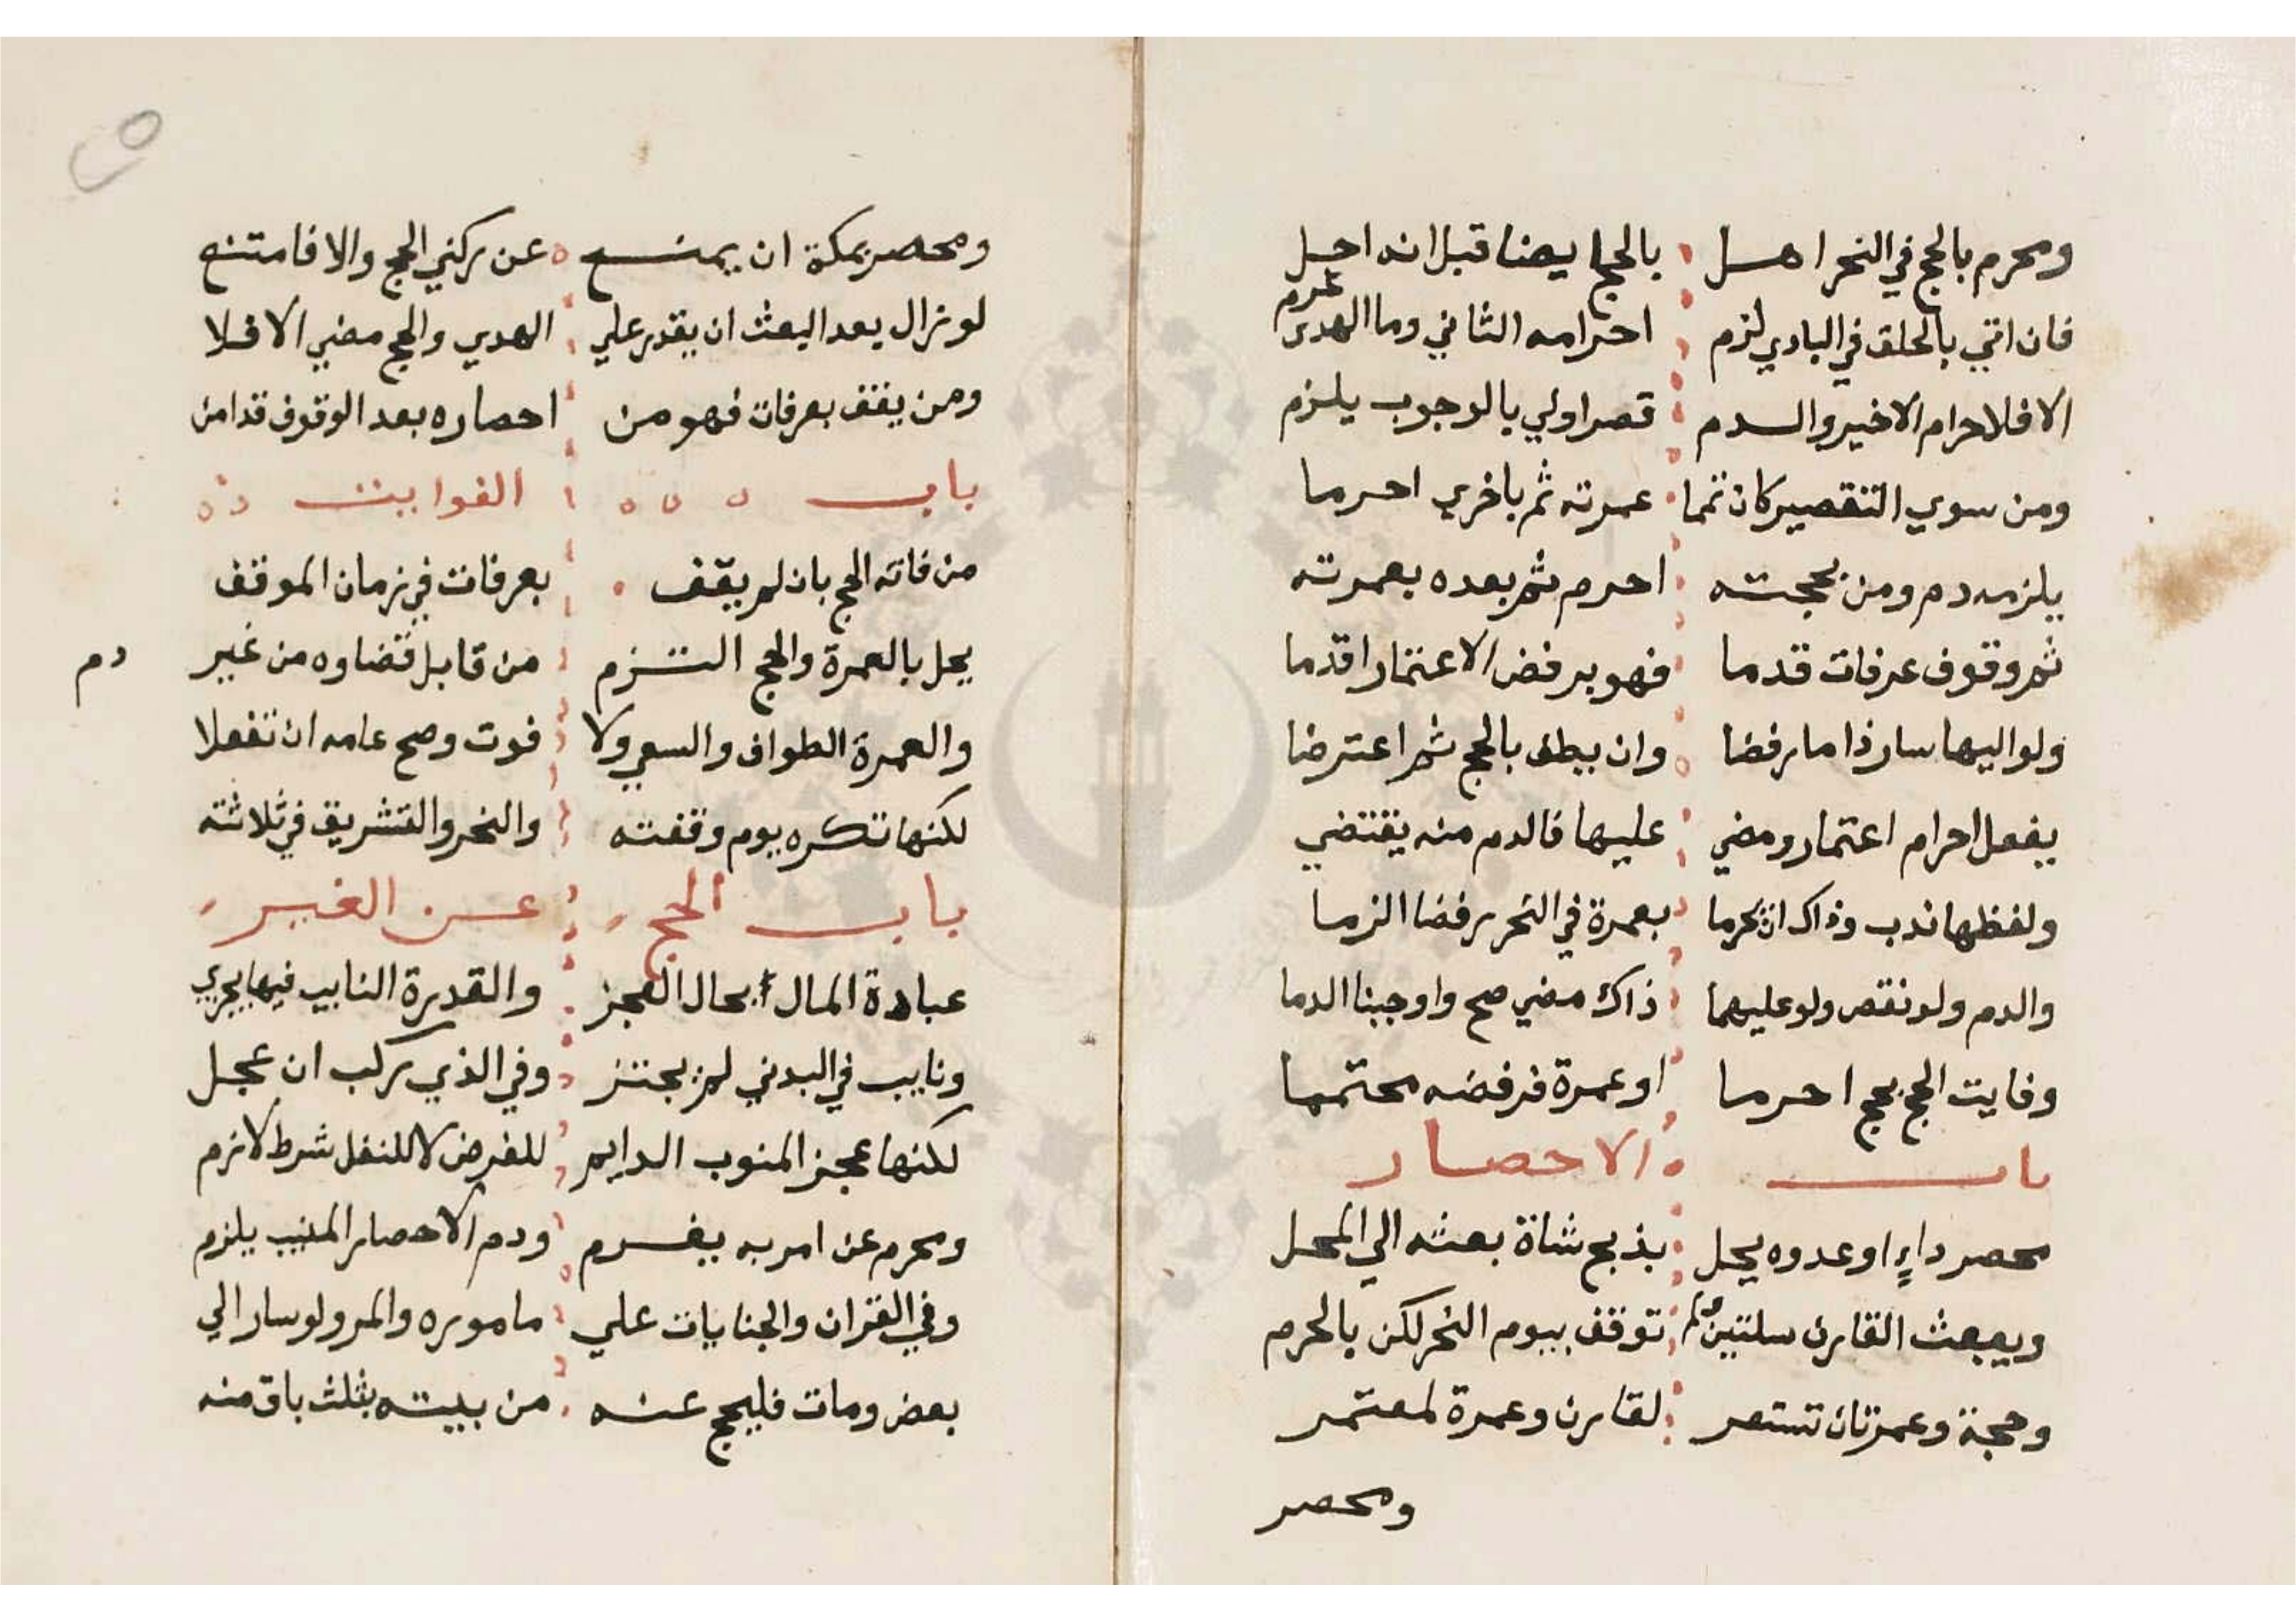 ومحرم بالحج في النحر اهل بالحج ايضا قبل انه احل
فان اتي بالحلق في البادي لزم احرامه الثاني وما الهدي غرم
الا فلاحرام الاخير والدم قصر اولي بالوجوب يلزم
ومن سوي التقصير كان تمما عمرته ثم باخري احرما
يلزمه دم ومن بحجته احرم ثم بعده بعمرته
ثم وقوف عرفات قدما فهو برفض الاعتمار اقدما
ولو اليها سار ذا ما رفضا وان يطف بالحج ثم اعترضا
يفعل احرام اعتمار ومضي عليها فالدم منه يقتضي
ولفظها ندب وذاك ان يحرما بعمرة في النحر رفضا الزما
والدم ولو نقص ولو عليهما ذاك مضي صح واوجبنا الدما
وفايت الحج بحج احرما او عمرة فرفضه محتمما
باب الاحصار
محصر داء او عدوه يحل بذبح شاة بعثه الي المحل
ويبعث القارن سلتين توقف بيوم النحر لكن بالحرم
وحجة وعمرتان تستعر لقارن وعمرة لمعتمر
ومحصر
ومحصر بمكة ان يمنع عن ركني الحج والا فامتنع
لو زال بعد البعث ان يقدر علي الهدي والحج مضي الا فلا
ومن يقف بعرفات فهو من احصاره بعد الوقوف قد امن
باب الفوايت
من فاته الحج بان لم يقف بعرفات في زمان الموقف
يحل بالعمرة والحج التزم من قابل قضاوه من غير دم
والعمرة الطواف والسعي ولا فوت وصح عامه ان تفعلا
لكنها تكره يوم وقفته والنحر والتشريق في ثلاثته
باب الحج عن الغير
عبادة المال بحال العجز والقدرة النايب فيها يجزي
ونايب في البدني لم يجتز وفي الذي ركب ان عجل
لكنها عجز المنوب الدايم للفرض لا للنفل شرط لازم
ومحرم عن امر به يغرم ودم الاحصار المنيب يلزم
وفي القران والجنايات علي ماموره والمر ولو سار الي
بعض ومات فليحج عنه من بيته بثلث باق منه